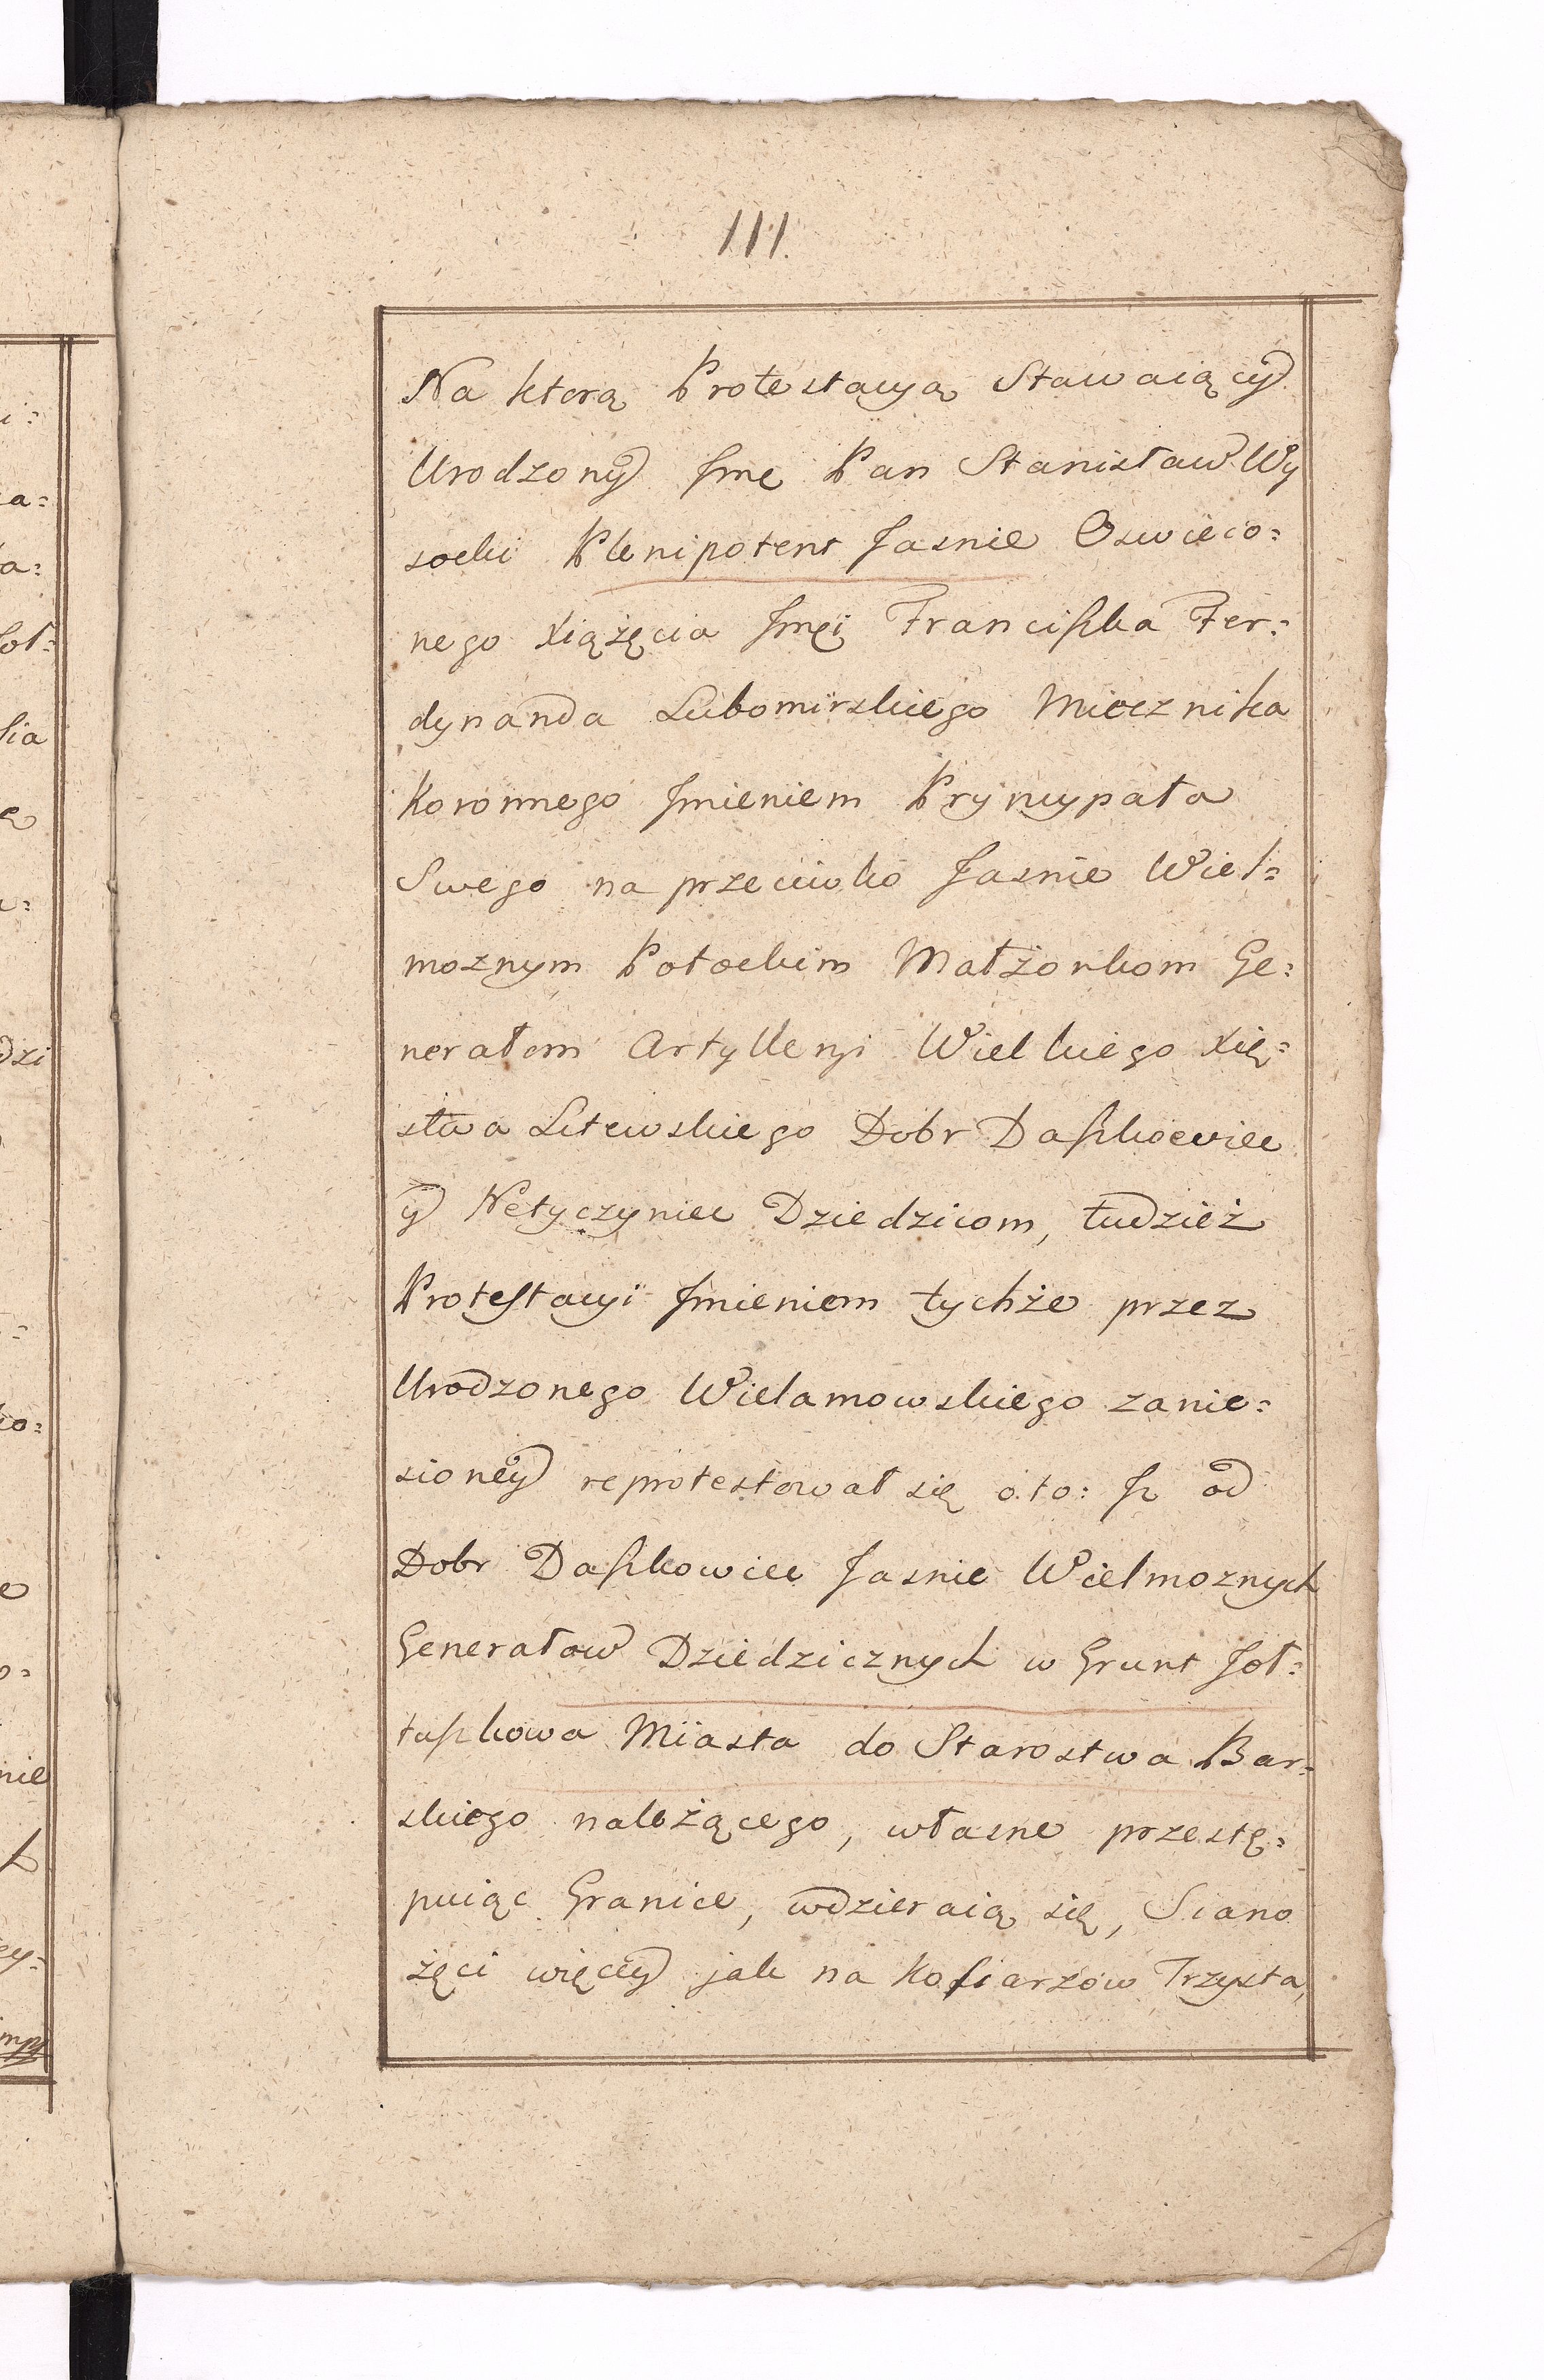 111.
Na ktorą Protestacyą Stawaiący
Urodzony Jmć Pan Stanisław Wy
socki Plenipotent Jasnie Oswieco=
nego Xiążęcia Jmći Franciszka Fer=
dynanda Lubomirskiego Miecznika
Koronnego Jmieniem Pryncypała
Swego na przeciwko Jasnie Wiel=
moznym Potockim Małżonkom Ge=
nerałom Artylleryi Wielkiego Xię=
stwa Litewskiego Dobr Daszkowiec
y Netyczyniec Dziedzicom, tudzież
Protestacyi Jmieniem tychże przez
Urodzonego Wielamowskiego zanie=
sioney reprotestował się o to: Jż od
Dobr Daszkowiec Jasnie Wielmoznych
Generałow Dziedzicznych w Grunt Joł=
tuszkowa Miasta do Starostwa Bar=
skiego należącego, własne przestę=
puiąc Granice, wdzieraią się, Siano
żęci więcey jak na Kosiarzow Trzysta,
ca=
ła=
sia
dzi
ko=
nie